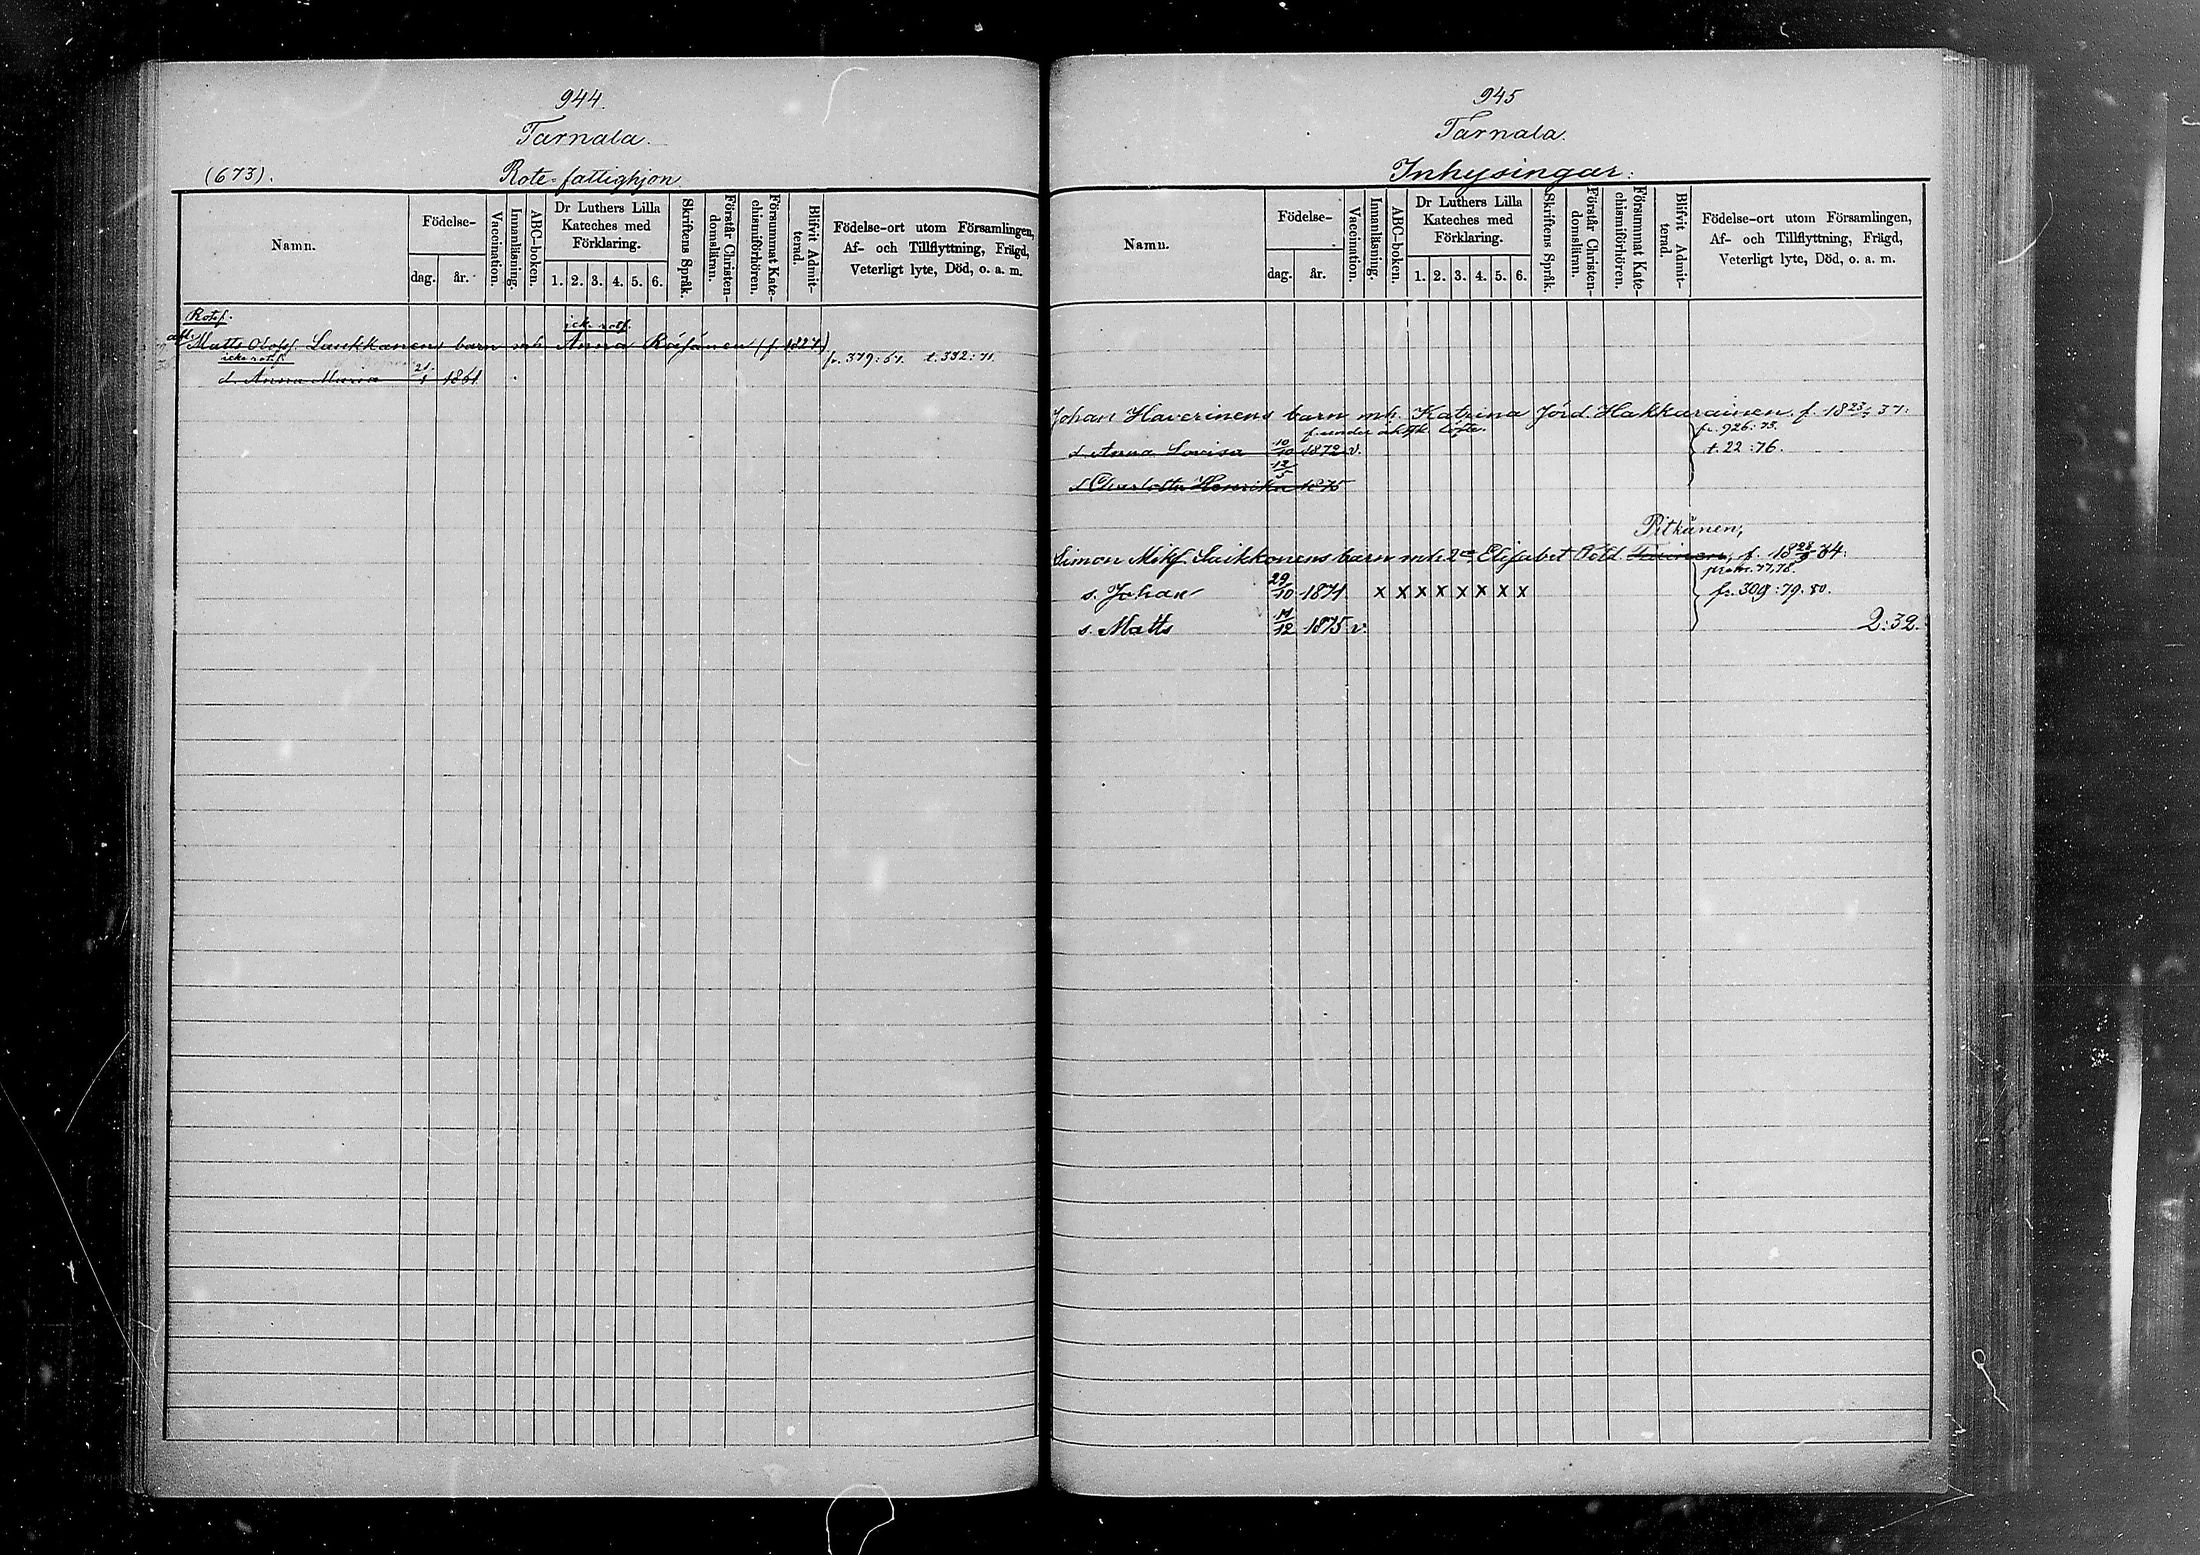 944.
Tarnala.
(673).
Rote-fattighjon
Namn.
Födelse-
dag.
år.
Vaccination.
Innanläsning.
ABC-boken.
Dr Luthers Lilla
Kateches med
Förklaring.
1. 2. 3. 4. 5. 6.
Skriftens Språk.
Förstår Christen-
domsläran.
Försummat Kate-
chismiförhören.
Blifvit Admit-
terad.
Födelse-ort utom Församlingen,
Af- och Tillflyttning, Frägd,
Veterligt lyte, Död, o. a. m.
Rotef.
icke rotf.
Matts Olofs. Laukkanens barn mh Anna Räisänen (f. 1827)
icke rotf.
fr. 379:67. t. 332:71
d. Anna Maria 21/1 1861
945
Tarnala.
Inhysingar:
Namn.
Födelse-
dag.
år.
Vaccination.
Innanläsning.
ABC-boken.
Dr Luthers Lilla
Kateches med
Förklaring.
1. 2. 3. 4. 5. 6.
Skriftens Språk.
Förstår Christen-
domsläran.
Försummat Kate-
chismiförhören.
Blifvit Admit-
terad.
Födelse-ort utom Församlingen,
Af- och Tillflyttning, Frägd,
Veterligt lyte, Död, o. a. m.
Johan Haverinens barn mh. Katrina Jörd. Hakkarainen, f. 18 37.
f. under äktsk. löfte.
fr. 926:73.
d. Anna Lovisa 10/10 1872 v.
t. 22:76.
d Charlotta Henrika 12/5 1875
Pitkänen,
Simon Mikf. Laikkonens barn mh. 2a Elisabet f. 18 28/9 34.
fr. 309:79.80.
s. Johan 29/10 1871 x x x x x x x x
s. Matts 17/12 1875 v.
2:32.